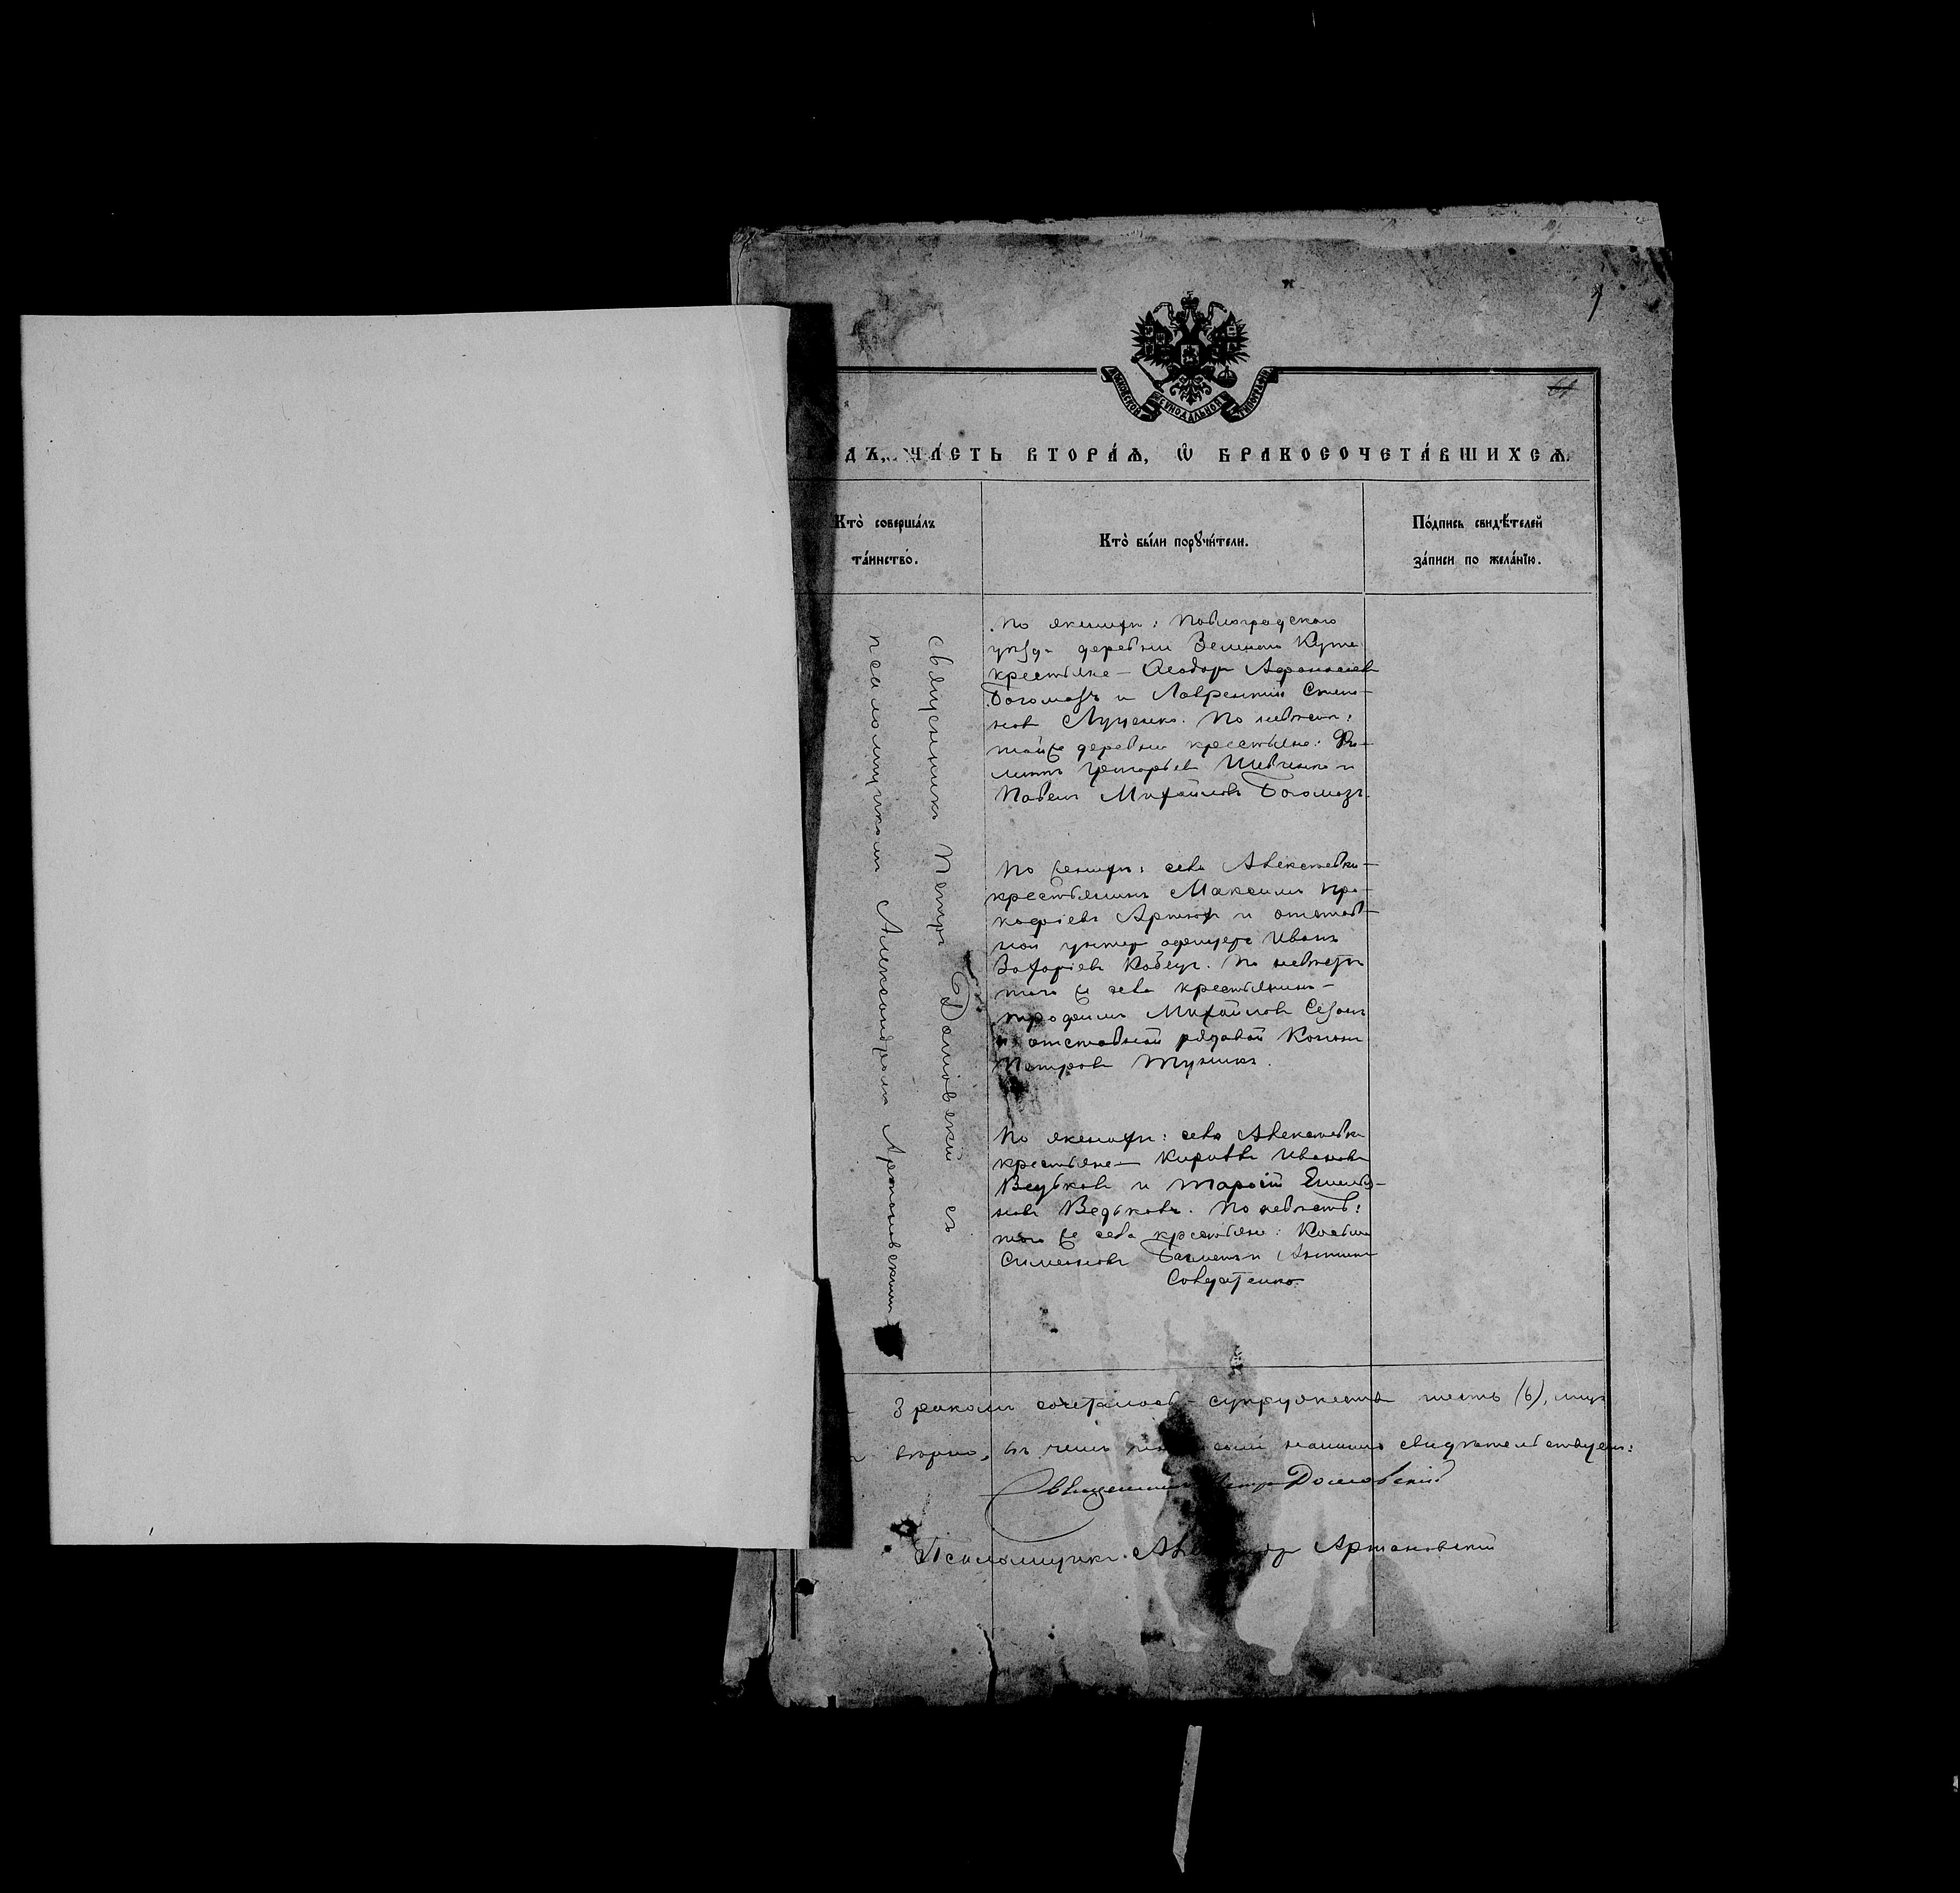 МОСКОВСКОЙ СѴНОДАЛЬНОЙ ТИПОГРАФІИ
ДЪ, ЧА́СТЬ ВТОРА́Ѧ, Ѽ БРАКОСОЧЕТА́ВШИХСѦ
Кто̀ соверша́лъ
та́инство.
Кто̀ бы́ли порꙋчи́тели.
По́дпись свидѣ́телей
за́писи по жела́нїю.
Священникъ Петръ Домовскій съ
псаломщикомъ Александромъ Артановскимъ
По женихѣ: Павлоградскаго
уѣзда деревни Зеленаго Кута
крестьяне – Ѳеодоръ Аѳанасіевъ
Богомазъ и Лаврентій Степа-
новъ Луценко. По невѣстѣ:
тойже деревни крестьяне: Фи-
липпъ Григорьевъ Шевченко и
Павелъ Михайловъ Богомазъ.
По женихѣ: села Алексѣевки
крестьянинъ Максимъ Про-
кофіевъ Артюхъ и отстав-
ной унтер офицеръ Иванъ
Захаріевъ Кобецъ. По невѣстѣ
того же села крестьянинъ –
Трофимъ Михайловъ
и отставной рядовой
Петровъ
По женихѣ: села Алексѣевки
крестьяне – Кириллъ Ивановъ
Ведьковъ и Тарасій Емелья-
новъ Ведьковъ. По невѣстѣ:
того же села крестьяне:
Симеоновъ
Солодченко.
бракомъ сочеталось супружествъ шесть (6), лицъ
вѣрно, въ чемъ свидѣтельствуемъ:
Священникъ Петръ Домовскій
Псаломщикъ Александръ Артановскій